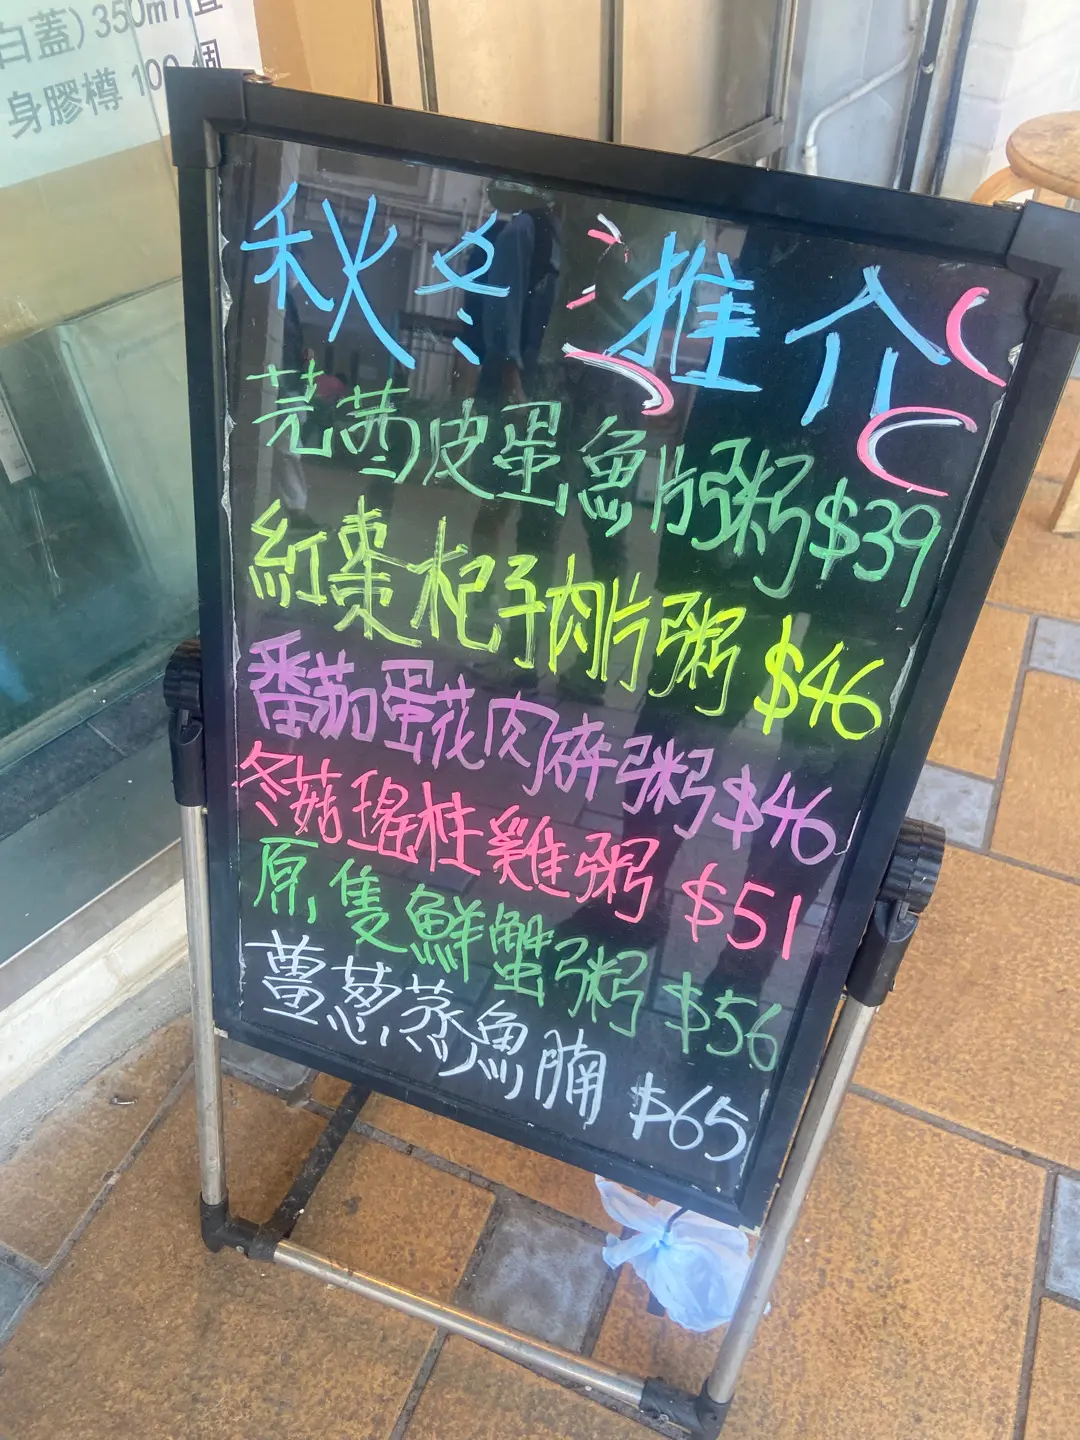 白蓋) 350ml
身膠樽 100 個
秋冬 推介
芫茜皮蛋魚片粥 $39
紅棗杞子肉片粥 $46
番茄蛋花肉碎粥 $46
冬菇瑤柱雞粥 $51
原隻鮮蟹粥 $56
薑葱蒸魚腩 $65